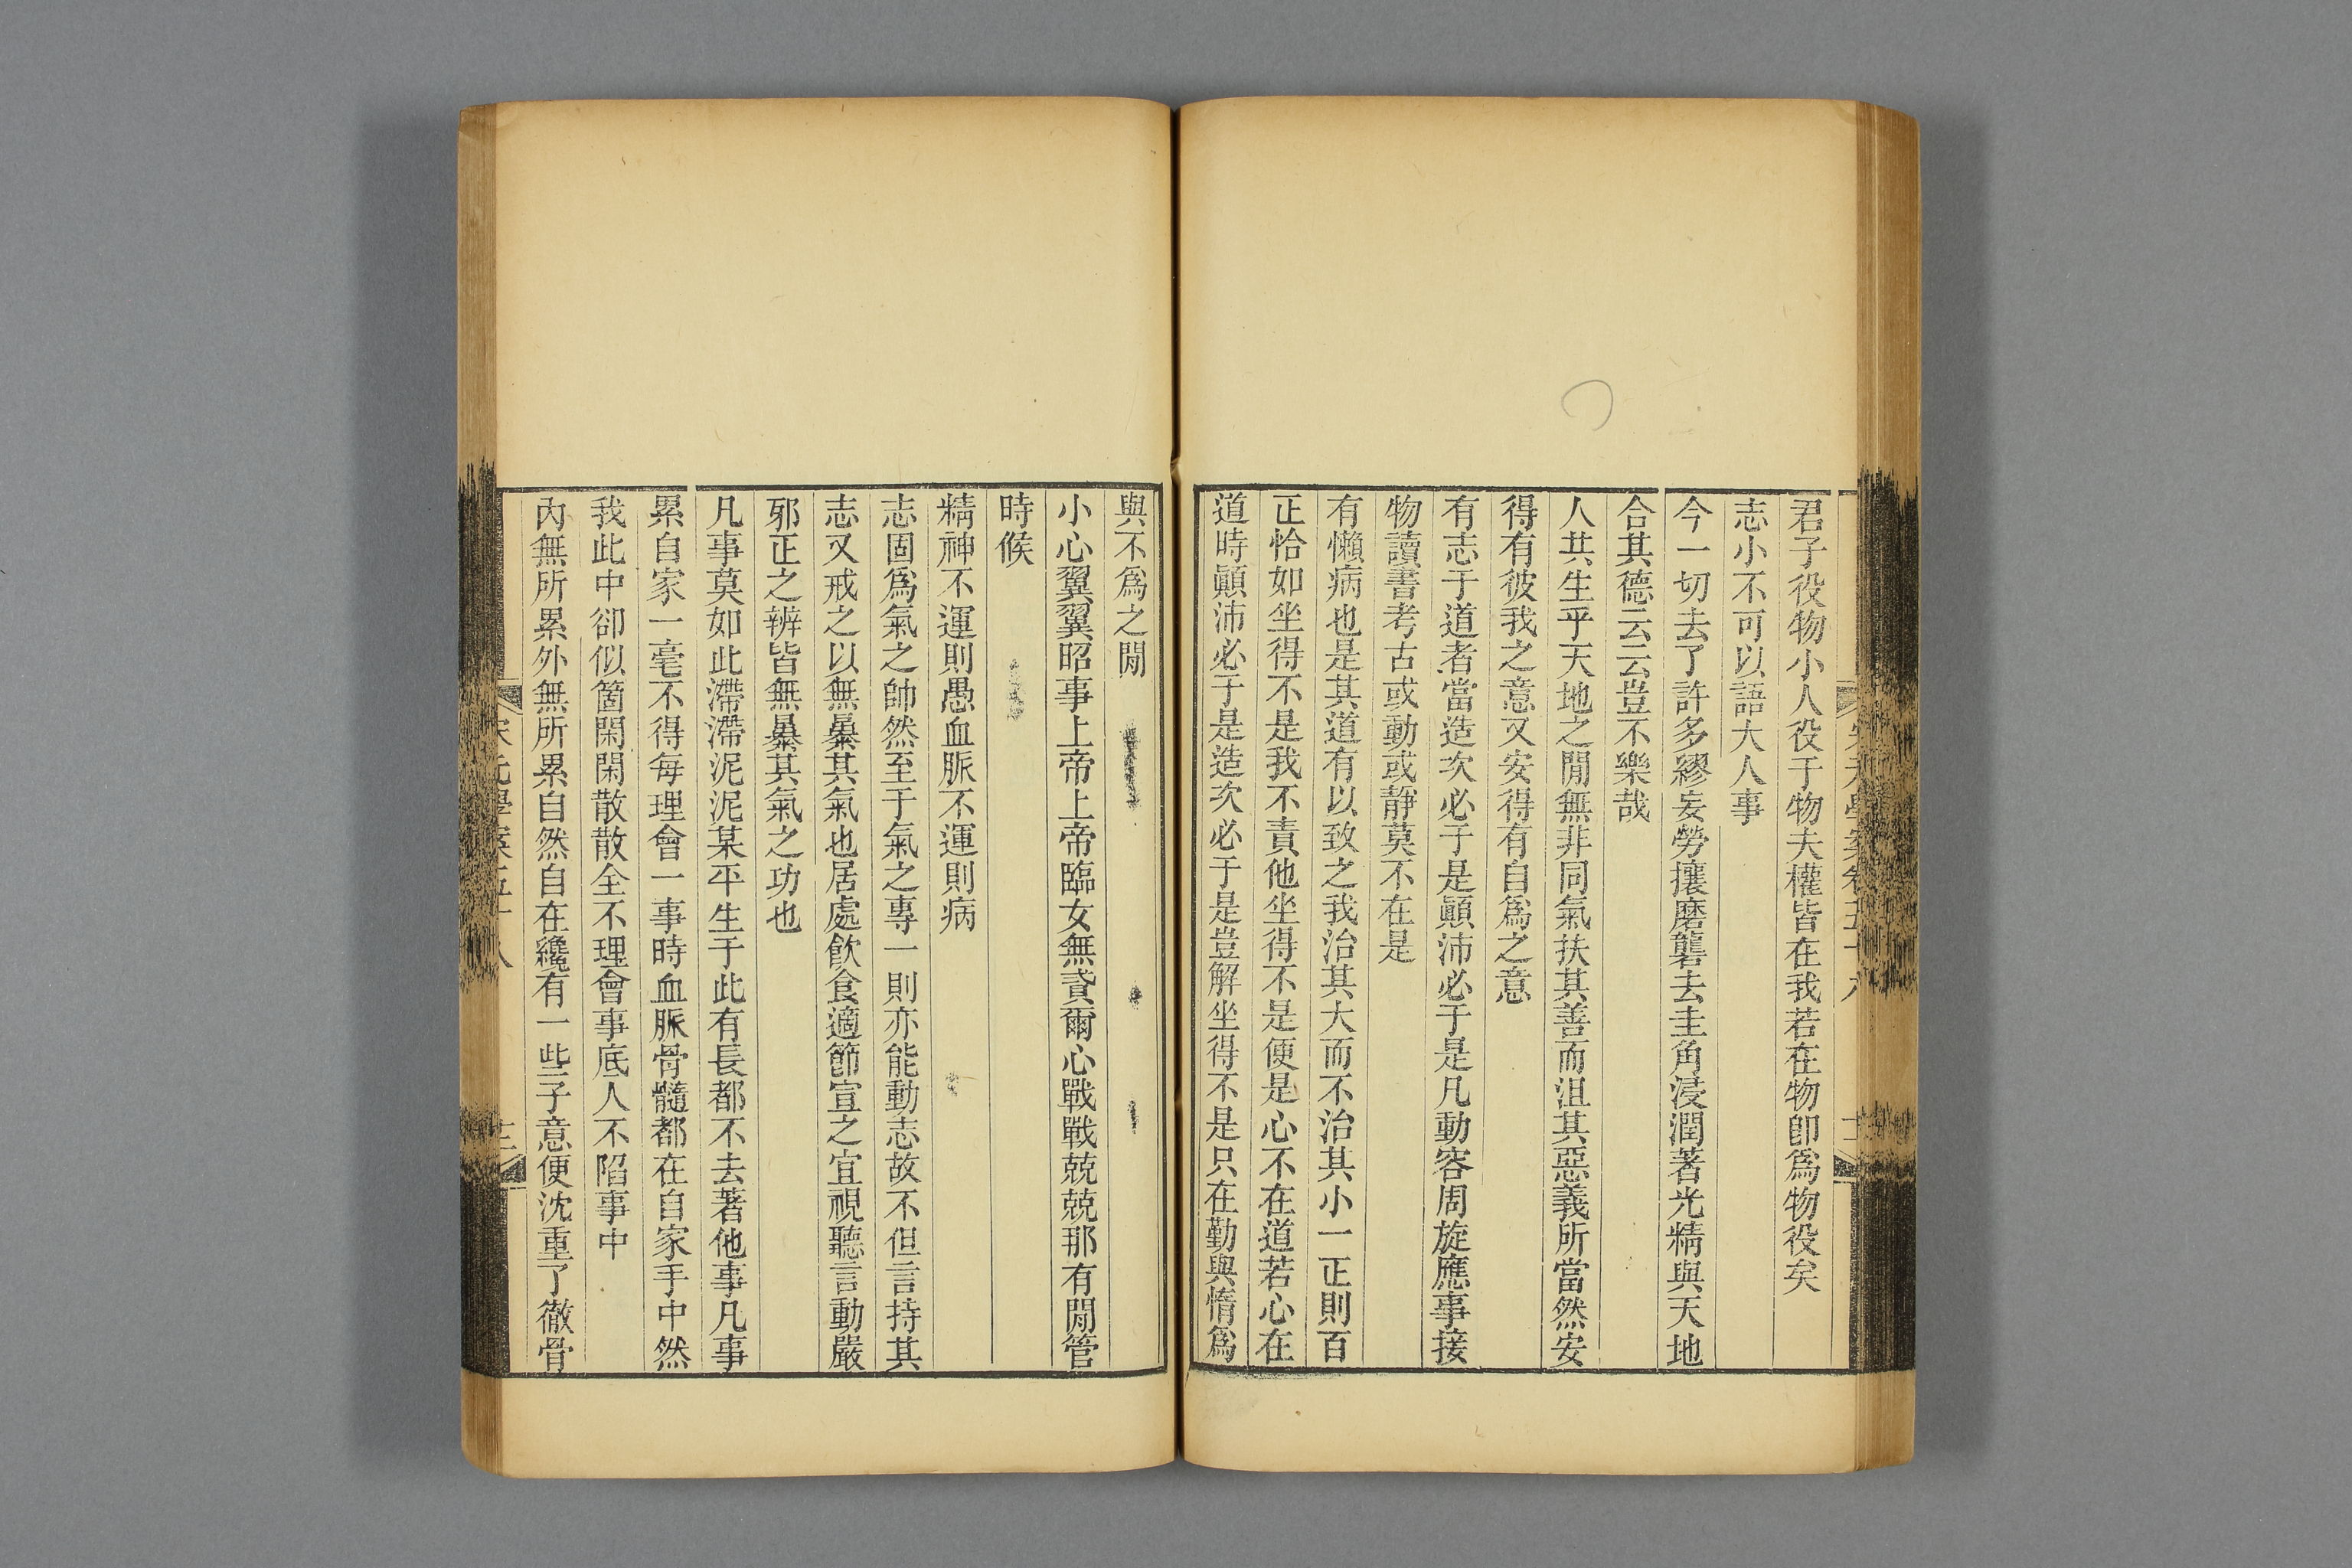 君子役物小人役于物夫權皆在我若在物卽爲物役矣
志小不可以語大人事
今一切去了許多繆妄勞攘磨礱去圭角浸潤著光精與天地
合其德云云豈不樂哉
人共生乎天地之閒無非同氣扶其善而沮其惡義所當然安
得有彼我之意又安得有自爲之意
有志于道者當造次必于是顚沛必于是凡動容周旋應事接
物讀書考古或動或靜莫不在是
有懶病也是其道有以致之我治其大而不治其小一正則百
正恰如坐得不是我不責他坐得不是便是心不在道若心在
道時顚沛必于是造次必于是豈解坐得不是只在勤與惰爲
與不爲之閒
小心翼翼昭事上帝上帝臨女無貳爾心戰戰兢兢那有閒管
時候
精神不運則愚血脈不運則病
志固爲氣之帥然至于氣之專一則亦能動志故不但言持其
志又戒之以無暴其氣也居處飮食適節宣之宜視聽言動嚴
邪正之辨皆無暴其氣之功也
凡事莫如此滯滯泥泥某平生于此有長都不去著他事凡事
累自家一毫不得每理會一事時血脈骨髓都在自家手中然
我此中卻似箇閑閑散散全不理會事底人不陷事中
內無所累外無所累自然自在纔有一些子意便沈重了徹骨